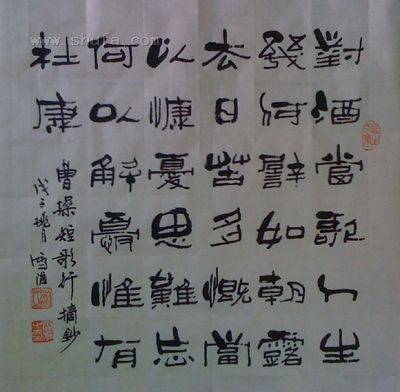 對酒當歌人生
幾何譬如朝露
去日苦多慨當
以慷憂思難忘
何以解憂惟有
杜康
曹操短歌行摘鈔
戊子桃月
www.shufa.com